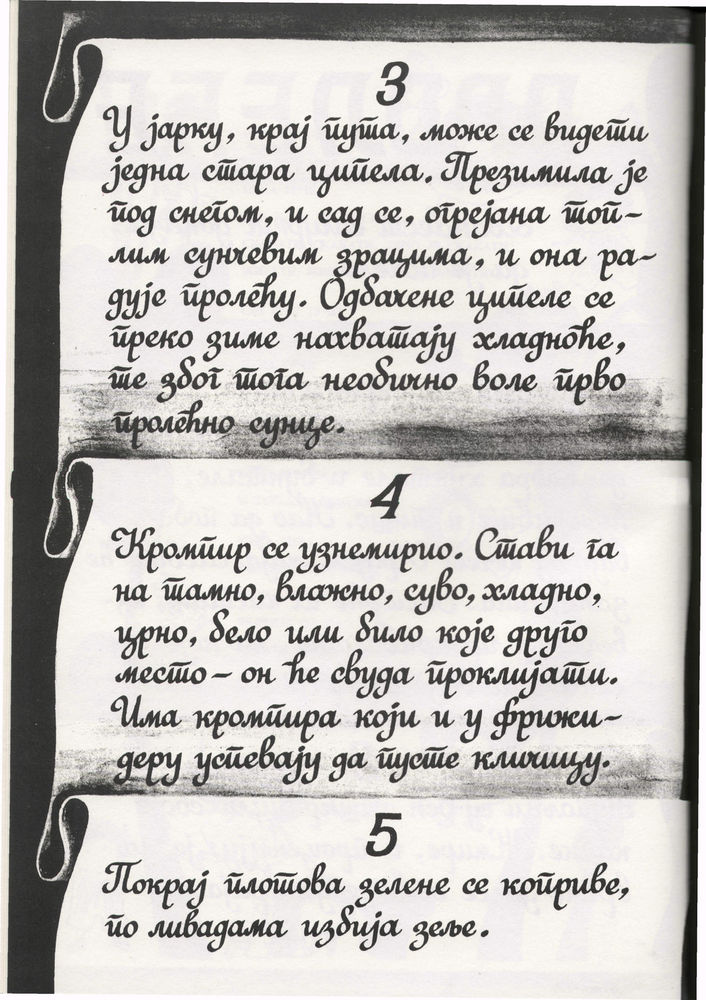 3
У јарку, крај пута, може се видети
једна стара ципела. Презимила је
под снегом, и сад се, огрејана топ-
лим сунчевим зрацима, и она ра-
дује пролећу. Одбачене ципеле се
преко зиме нахватају хладноће,
те због тога необично воле прво
пролећно сунце.
4
Кромпир се узнемирио. Стави га
на тамно, влажно, суво, хладно,
црно, бело или било које друго
место – он ће свуда проклијати.
Има кромпира који и у фрижи-
деру успевају да пусте кличицу.
5
Покрај плотова зелене се коприве,
по ливадама избија зеље.